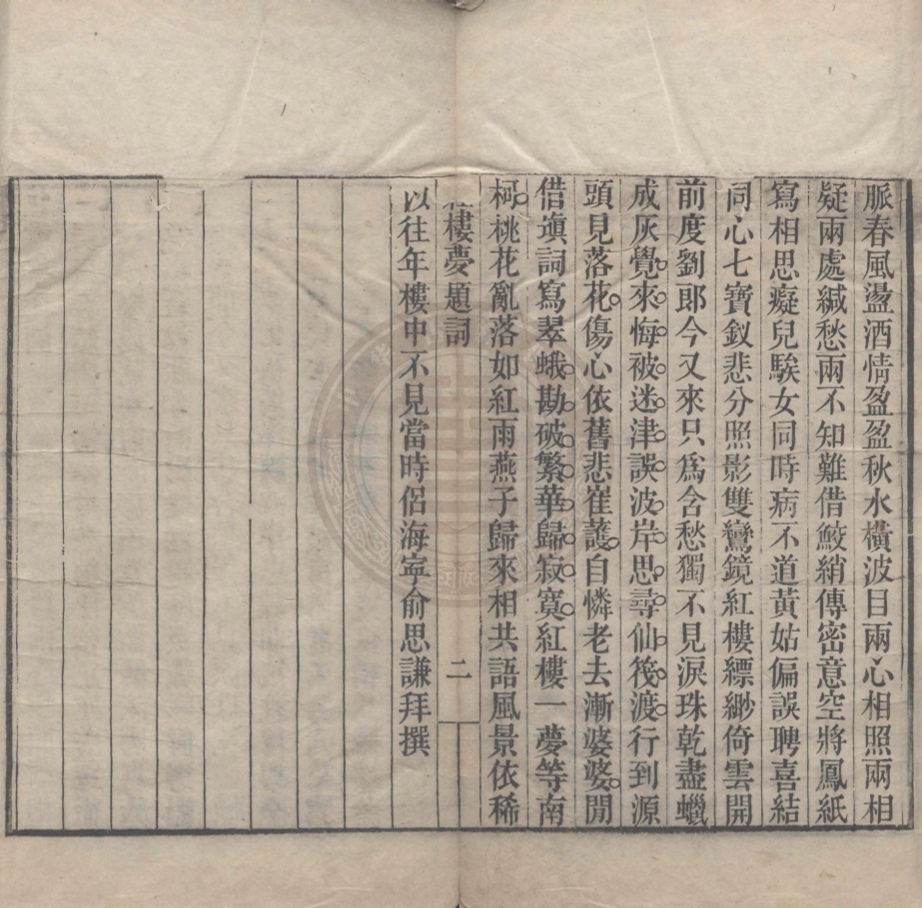 脈春風盪酒情盈盈秋水橫波目兩心相照兩相
疑兩處緘愁兩不知難借鮫綃傳密意空將鳳紙
寫相思癡兒騃女同時病不道黃姑偏誤聘喜結
同心七寶釵悲分照影雙鸞鏡紅樓縹緲倚雲開
前度劉郎今又來只爲含愁獨不見淚珠乾盡蠟
成灰覺來悔被迷津誤波岸思尋仙筏渡行到源
頭見落花傷心依舊悲崔護自憐老去漸婆婆閒
借塡詞寫翠蛾勘破繁華歸寂寞紅樓一夢等南
柯桃花亂落如紅雨燕子歸來相共語風景依稀
樓夢題詞 二
以往年樓中不見當時侶海寧俞思謙拜撰